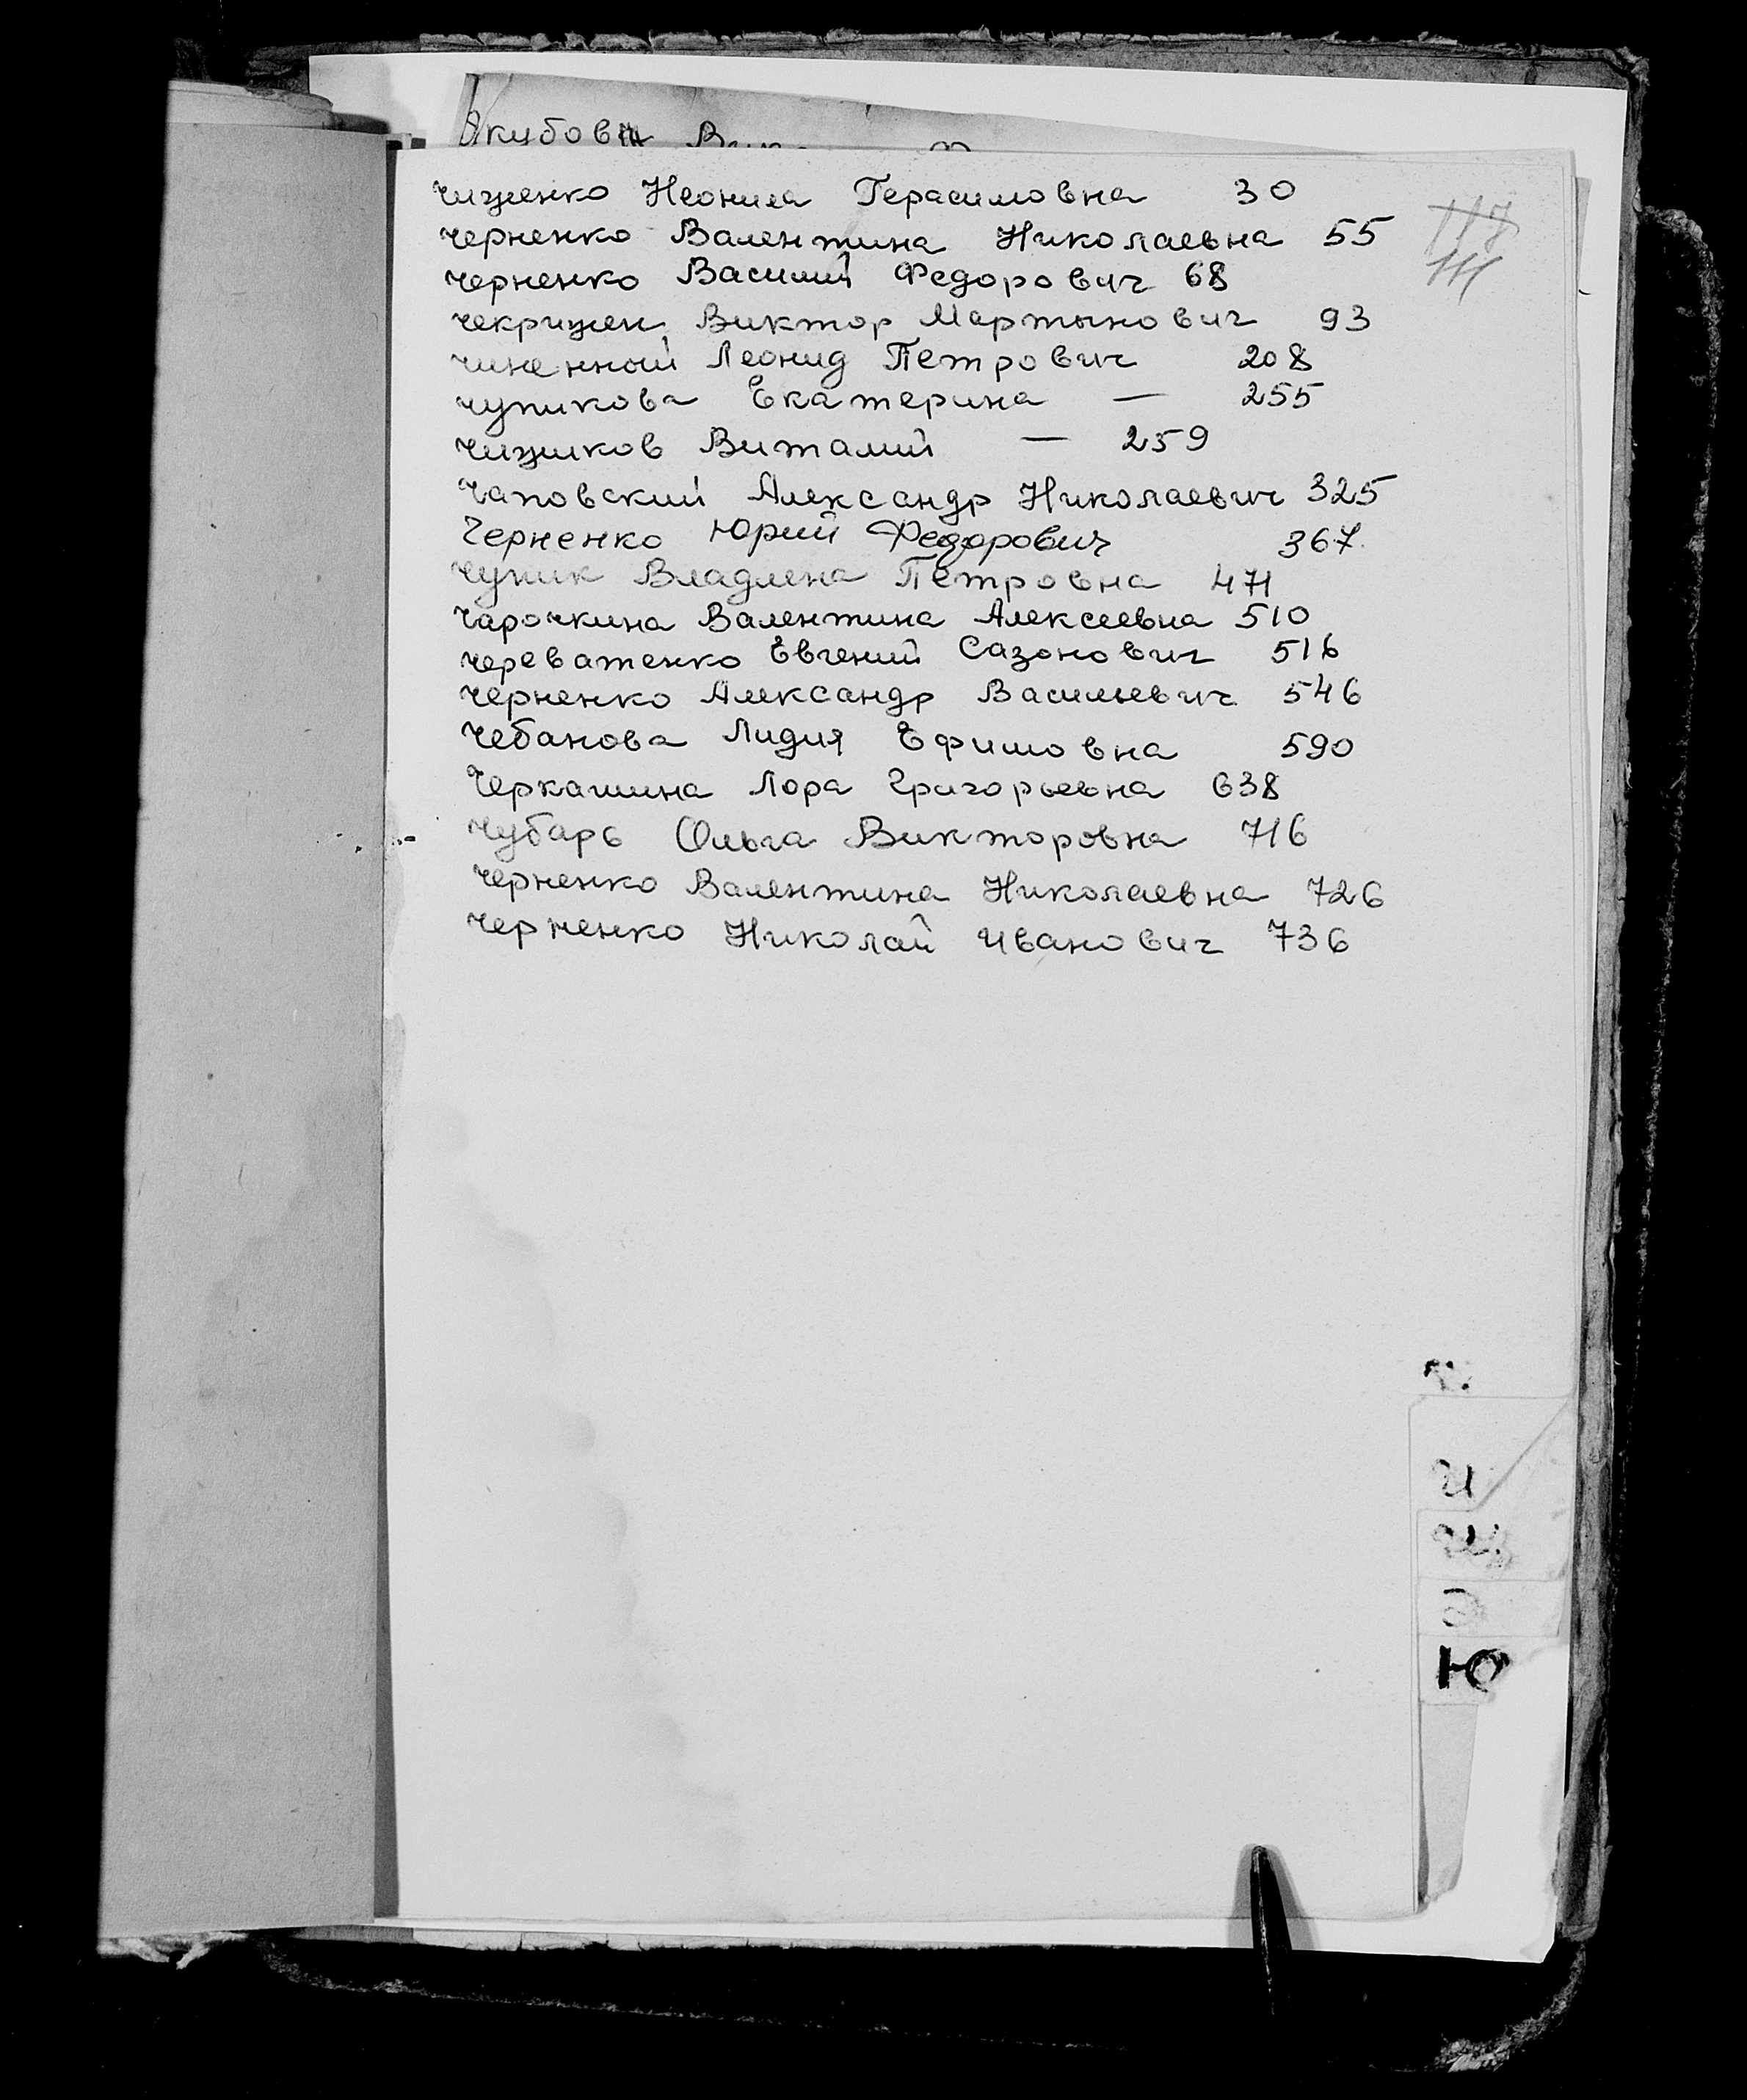 Якубов
Чиженко Неонила Герасимовна 30
Черненко Валентина Николаевна 55
Черненко Василий Федорович 68
Чекрижен Виктор Мартынович 93
Чиненной Леонид Петрович 208
Чупикова Екатерина — 255
Чижиков Виталий — 259
Чаповский Александр Николаевич 325
Черненко Юрий Федорович 367
Чупик Владлена Петровна 471
Чарочкина Валентина Алексеевна 510
Череватенко Евгений Сазонович 516
Черненко Александр Васильевич 546
Чебанова Лидия Ефимовна 590
Черкашина Лора Григорьевна 638
Чубарь Ольга Викторовна 716
Черненко Валентина Николаевна 726
Черненко Николай Иванович 736
117
111
Ю